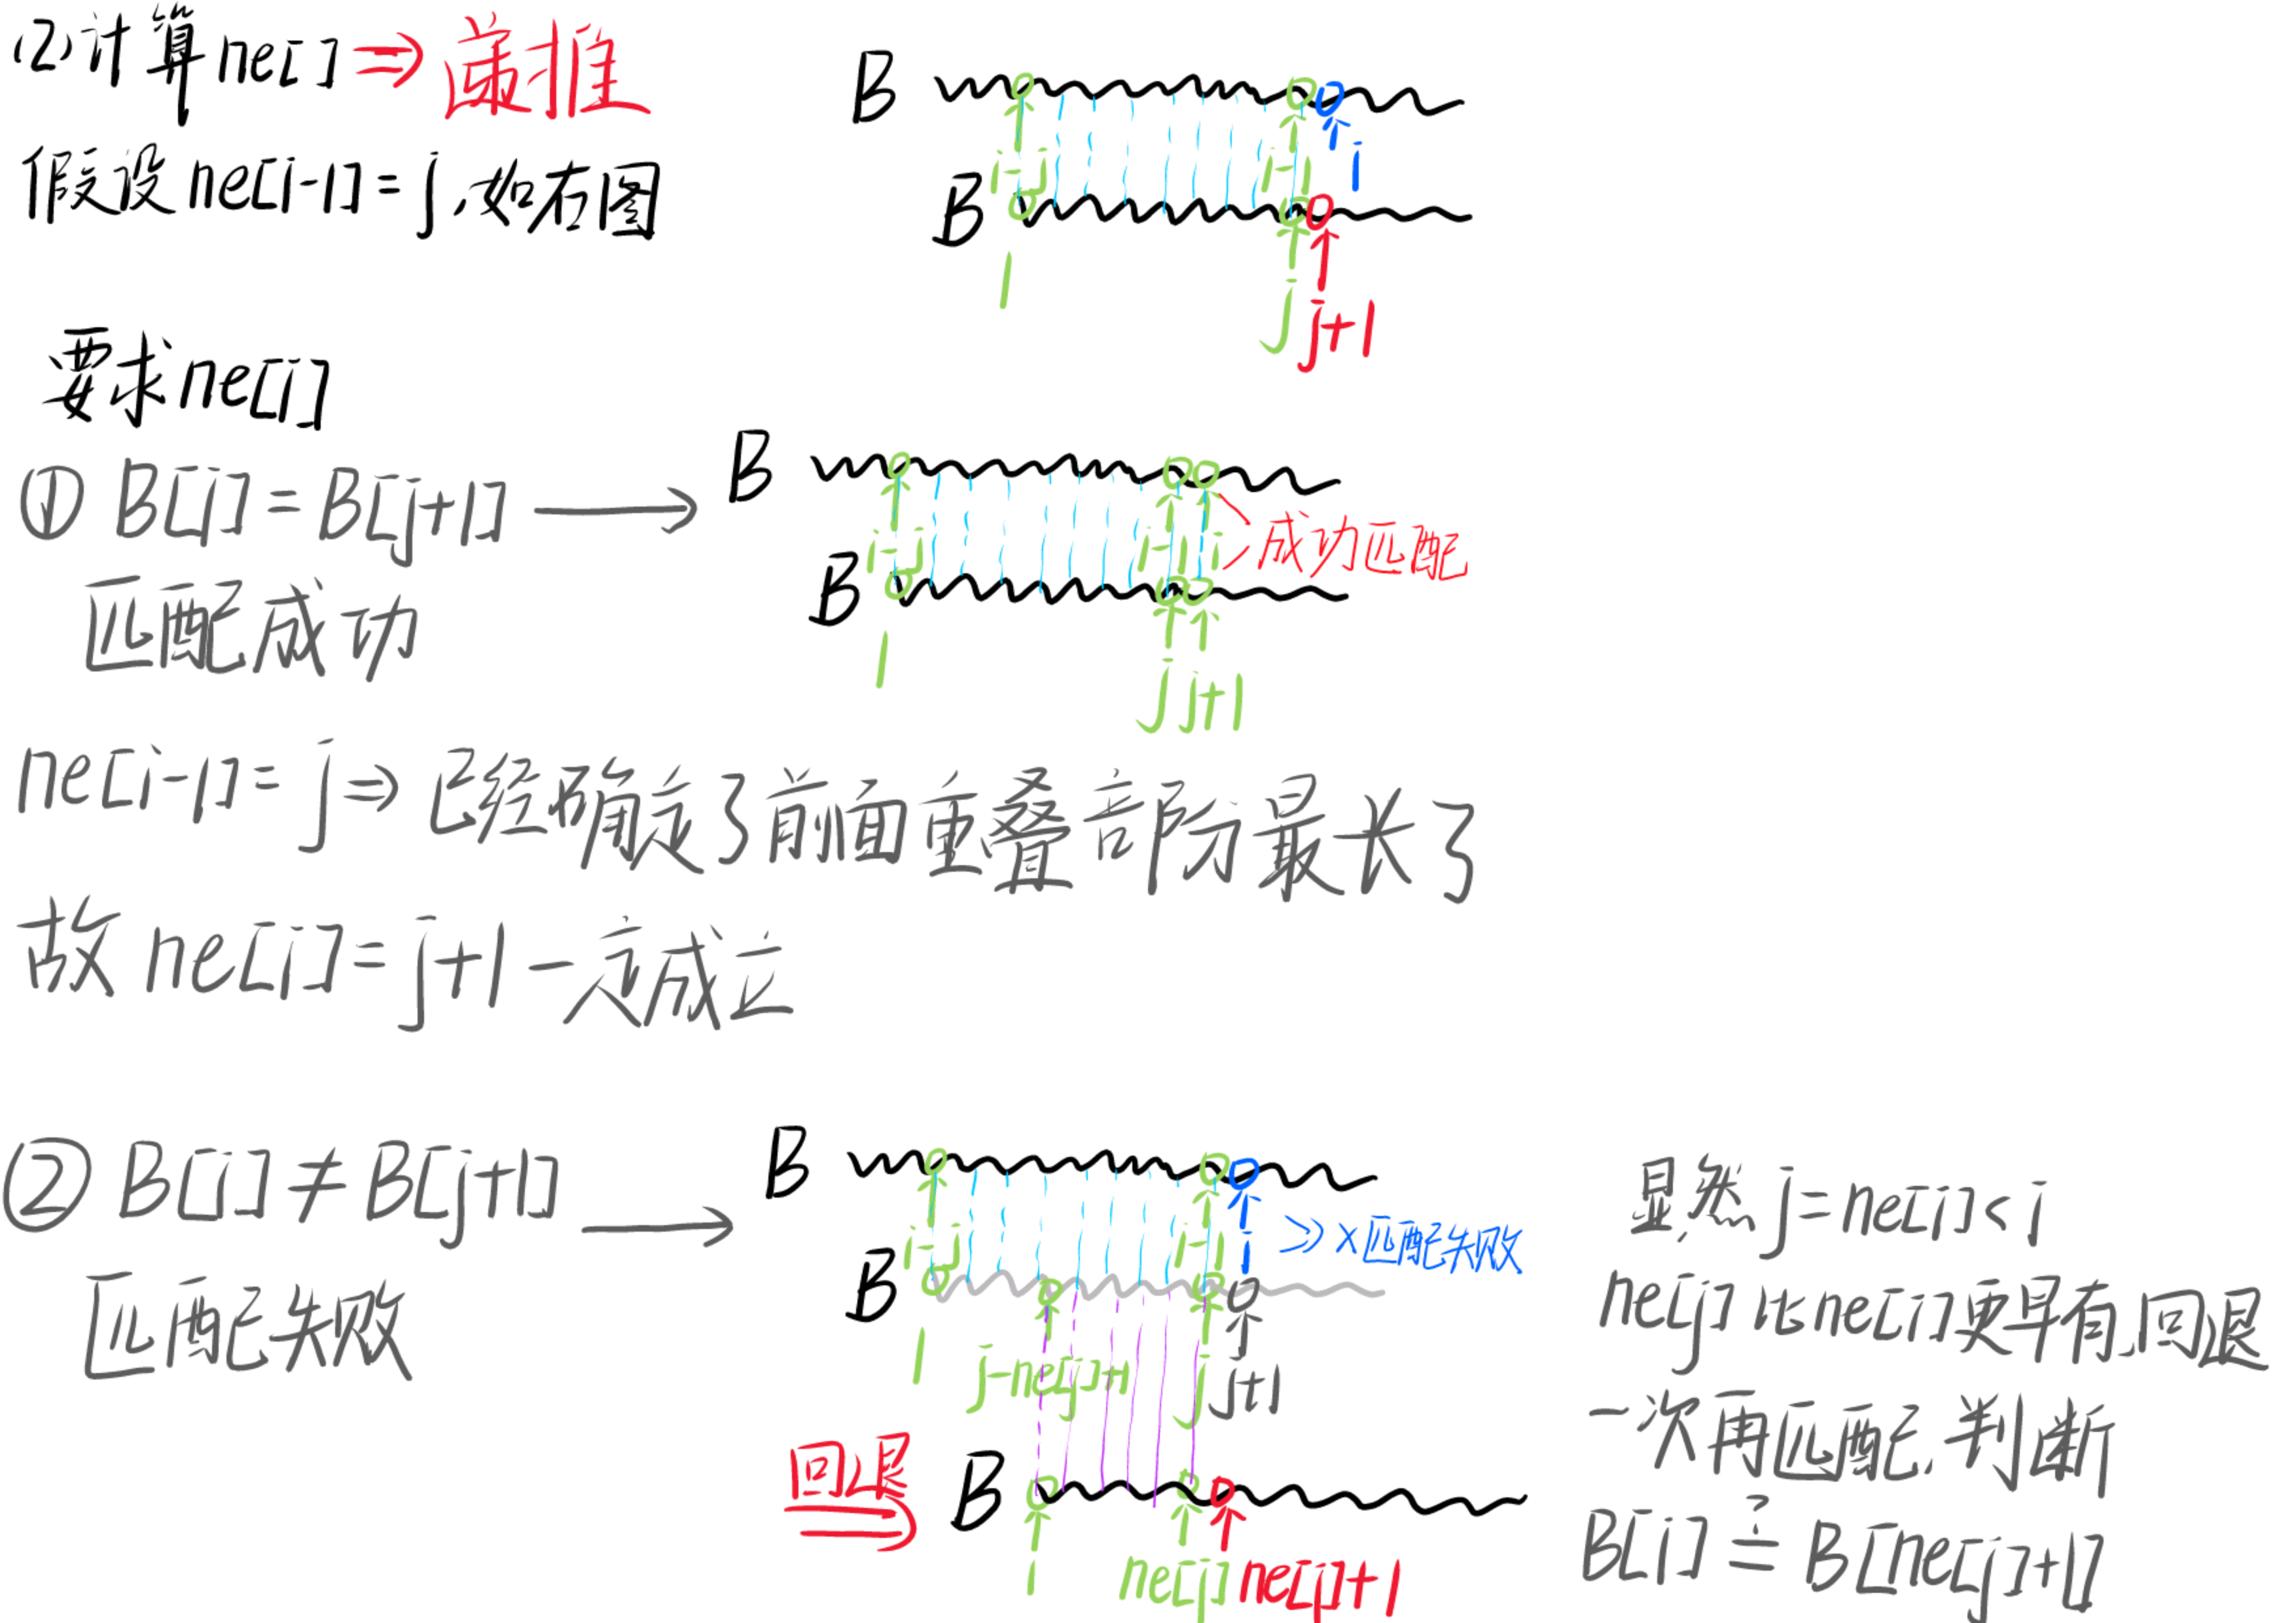 (2)计算ne[] ⇒ 递推
假设ne[i-1]=j,如右图
B
i-j
i-1
i
B
1
j
j+1
要求ne[i]
① B[i]=B[j+1] →
匹配成功
B
i-j
i-1
i
成功匹配
B
1
j
j+1
ne[i-1]=j⇒已经确定了前面重叠部分最长了
故ne[i]=j+1一定成立
② B[i]≠B[j+1] →
匹配失败
B
i-j
i-1
i
⇒×匹配失败
B
1
j-ne[j]+1
j
j+1
回退
B
1
ne[j]
ne[j]+1
显然j=ne[i]<i
ne[j]比ne[i]更早有,回退
一次再匹配,判断
B[i]≟B[ne[j]+1]